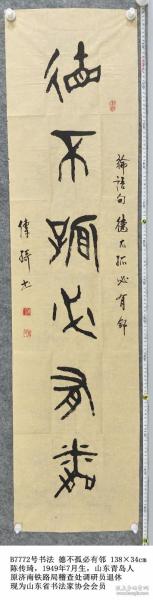 德不孤必有邻
论语句 德不孤必有邻
传琦书
B7772号书法 德不孤必有邻 138×34cm
陈传琦，1949年7月生，山东青岛人
原济南铁路局稽查处调研员退休
现为山东省书法家协会会员